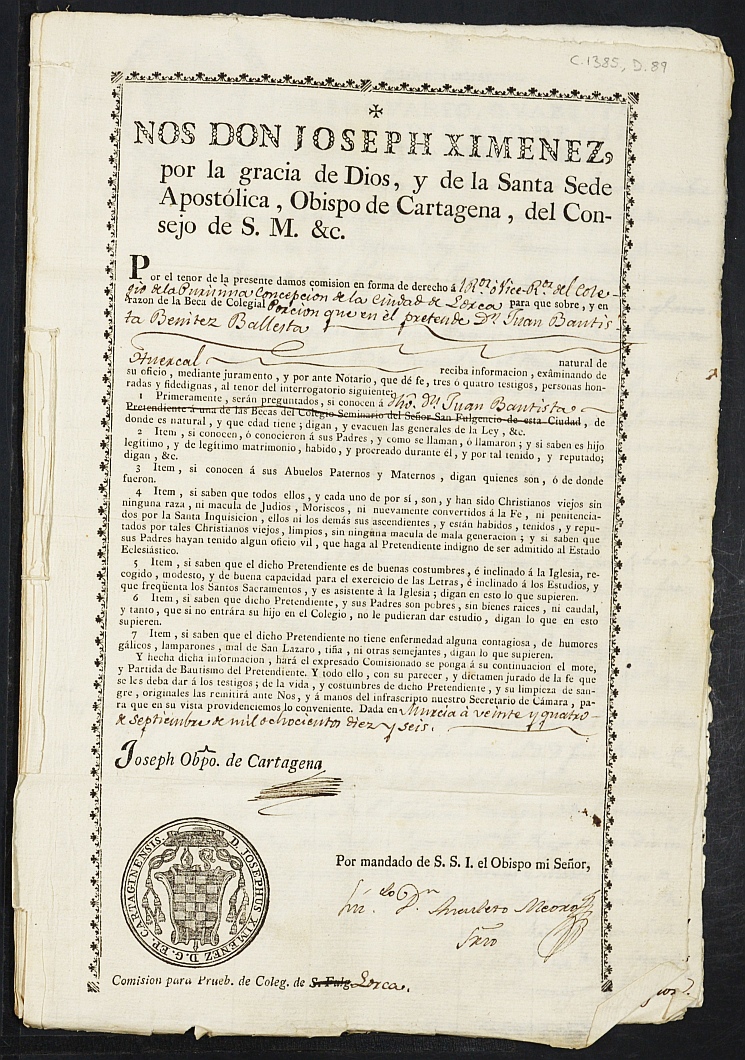 C.1385, D.89
✠
NOS DON JOSEPH XIMENEZ,
por la gracia de Dios, y de la Santa Sede
Apostólica, Obispo de Cartagena, del Con-
sejo de S. M. &c.
Por el tenor de la presente damos comision en forma de derecho á l Ror. ó Vice-Ror. del Cole-
gio de la Purisima Concepcion de la Ciudad de Lorca para que sobre, y en
razon de la Beca de Colegial Porcion que en él pretende Dn. Juan Bautis
ta Benitez Ballesta
natural de
Huercal reciba informacion, examinando de
su oficio, mediante juramento, y por ante Notario, que dé fe, tres ó quatro testigos, personas hon-
radas y fidedignas, al tenor del interrogatorio siguiente.
1 Primeramente, serán preguntados, si conocen á dho. Dn. Juan Bautista
Pretendiente á una de las Becas del Colegio Seminario del Señor San Fulgencio de esta Ciudad, de
donde es natural, y que edad tiene; digan, y evacuen las generales de la Ley, &c.
2 Item, si conocen, ó conocieron á sus Padres, y como se llaman, ó llamaron; y si saben es hijo
legítimo, y de legítimo matrimonio, habido, y procreado durante él, y por tal tenido, y reputado;
digan, &c.
3 Item, si conocen á sus Abuelos Paternos y Maternos, digan quienes son, ó de donde
fueron.
4 Item, si saben que todos ellos, y cada uno de por sí, son, y han sido Christianos viejos sin
ninguna raza, ni macula de Judios, Moriscos, ni nuevamente convertidos á la Fe, ni penitencia-
dos por la Santa Inquisicion, ellos ni los demás sus ascendientes, y están habidos, tenidos, y repu-
tados por tales Christianos viejos, limpios, sin ninguna macula de mala generacion; y si saben que
sus Padres hayan tenido algun oficio vil, que haga al Pretendiente indigno de ser admitido al Estado
Eclesiástico.
5 Item, si saben que el dicho Pretendiente es de buenas costumbres, é inclinado á la Iglesia, re-
cogido, modesto, y de buena capacidad para el exercicio de las Letras, é inclinado á los Estudios, y
que freqüenta los Santos Sacramentos, y es asistente á la Iglesia; digan en esto lo que supieren.
6 Item, si saben que dicho Pretendiente, y sus Padres son pobres, sin bienes raices, ni caudal,
y tanto, que si no entrára su hijo en el Colegio, no le pudieran dar estudio, digan lo que en esto
supieren.
7 Item, si saben que el dicho Pretendiente no tiene enfermedad alguna contagiosa, de humores
gálicos, lamparones, mal de San Lazaro, tiña, ni otras semejantes, digan lo que supieren.
Y hecha dicha informacion, hará el expresado Comisionado se ponga á su continuacion el mote,
y Partida de Bautismo del Pretendiente. Y todo ello, con su parecer, y dictamen jurado de la fe que
se les deba dar á los testigos; de la vida, y costumbres de dicho Pretendiente, y su limpieza de san-
gre, originales las remitirá ante Nos, y á manos del infrascripto nuestro Secretario de Cámara, pa-
ra que en su vista providenciemos lo conveniente. Dada en Murcia à veinte y quatro
de septiembre de mil ochociento diez y seis.
Joseph Obpo. de Cartagena
D. JOSEPHUS XIMENEZ D. G. EP. CARTAGINENSIS.
Por mandado de S. S. I. el Obispo mi Señor,
Dn. Anacleto Meoro
Srio
Comision para Prueb. de Coleg. de S. Fulg. Lorca.